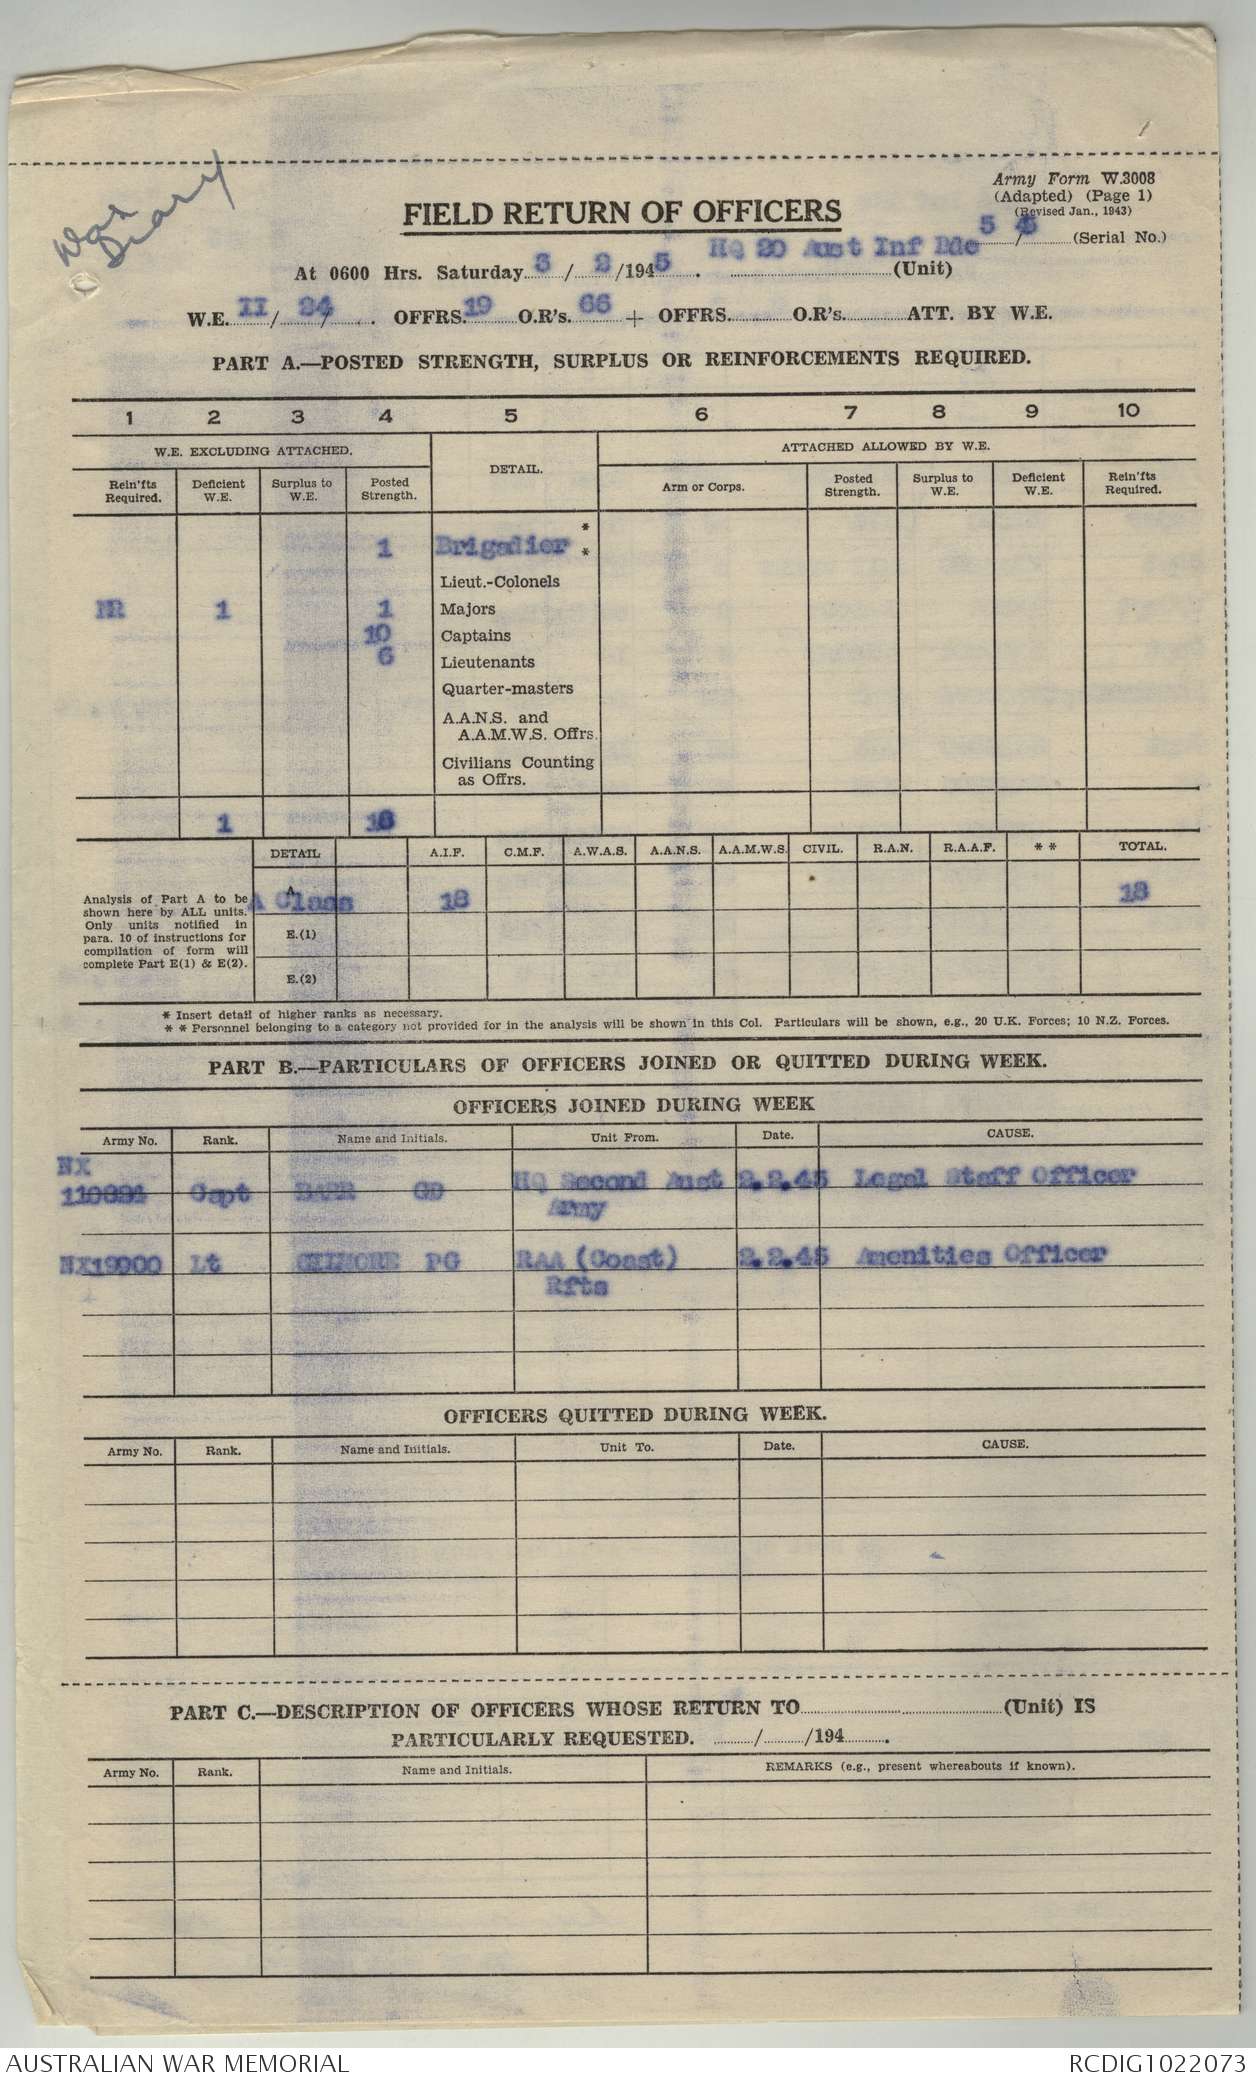 War
Diary
Army Form W.3008
(Adapted) (Page 1)
(Revised Jan., 1943)
5 / 45 (Serial No.)
FIELD RETURN OF OFFICERS
At 0600 Hrs. Saturday 3 / 2 /1945. HQ 20 Aust Inf Bde (Unit)
W.E. II / 24 / . OFFRS. 19 O.R's. 66 + OFFRS. O.R's. ATT. BY W.E.
PART A.—POSTED STRENGTH, SURPLUS OR REINFORCEMENTS REQUIRED.
1 2 3 4 5 6 7 8 9 10
W.E. EXCLUDING ATTACHED. DETAIL. ATTACHED ALLOWED BY W.E.
Rein'fts Required. Deficient W.E. Surplus to W.E. Posted Strength. Arm or Corps. Posted Strength. Surplus to W.E. Deficient W.E. Rein'fts Required.
*
1 Brigadier *
Lieut.-Colonels
1 1 Majors
10 Captains
6 Lieutenants
Quarter-masters
A.A.N.S. and
A.A.M.W.S. Offrs.
Civilians Counting
as Offrs.
1 18
DETAIL A.I.F. C.M.F. A.W.A.S. A.A.N.S. A.A.M.W.S. CIVIL. R.A.N. R.A.A.F. * * TOTAL.
Analysis of Part A to be
shown here by ALL units.
Only units notified in
para. 10 of instructions for
compilation of form will
complete Part E(1) & E(2).
A
A Class 18 18
E.(1)
E.(2)
* Insert detail of higher ranks as necessary.
* * Personnel belonging to a category not provided for in the analysis will be shown in this Col. Particulars will be shown, e.g., 20 U.K. Forces; 10 N.Z. Forces.
PART B.—PARTICULARS OF OFFICERS JOINED OR QUITTED DURING WEEK.
OFFICERS JOINED DURING WEEK
Army No. Rank. Name and Initials. Unit From. Date. CAUSE.
NX
Capt BARR GD HQ Second Aust 2.2.45 Legal Staff Officer
Army
NX19900 Lt GILMORE PG RAA (Coast) 2.2.45 Amenities Officer
Rfts
OFFICERS QUITTED DURING WEEK.
Army No. Rank. Name and Initials. Unit To. Date. CAUSE.
PART C.—DESCRIPTION OF OFFICERS WHOSE RETURN TO (Unit) IS
PARTICULARLY REQUESTED. / /194 .
Army No. Rank. Name and Initials. REMARKS (e.g., present whereabouts if known).
AUSTRALIAN WAR MEMORIAL RCDIG1022073